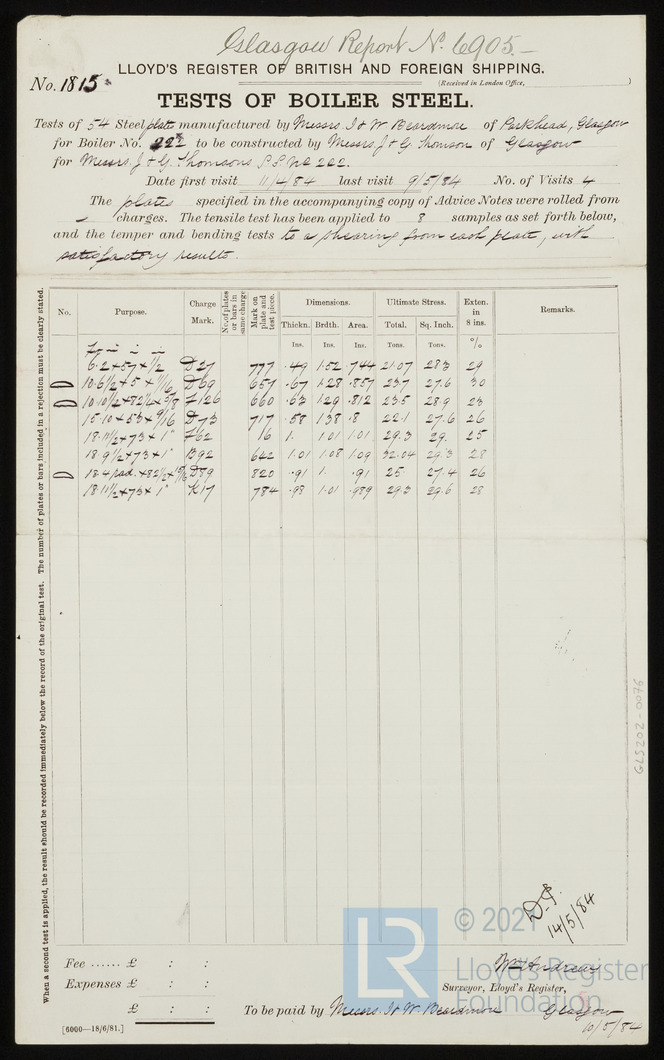 Glasgow Report No. 6905.-
LLOYD'S REGISTER OF BRITISH AND FOREIGN SHIPPING.
No. 1815
(Received in London Office, )
TESTS OF BOILER STEEL.
Tests of 54 Steel plate manufactured by Messrs J & W Beardmore of Parkhead, Glasgow
for Boiler No. 222 to be constructed by Messrs J & G. Thomson of Glasgow
for Messrs. J & G. Thomsons S.S No 222.
Date first visit 11/4/84 last visit 9/5/84 No. of Visits 4
The plates specified in the accompanying copy of Advice Notes were rolled from
charges. The tensile test has been applied to 8 samples as set forth below,
and the temper and bending tests to a shearing from each plate, with
satisfactory results.
No. Purpose. Charge Mark. No. of plates or bars in same charge Mark on plate and test piece. Dimensions. Ultimate Stress. Exten. in 8 ins. Remarks.
Thickn. Brdth. Area. Total. Sq. Inch.
Ins. Ins. Ins. Tons. Tons. %
6.2 x 57 x 1/2 D27 777 .49 1.52 .744 21.07 28.3 29
10.6 1/2 x 5 x 11/16 D69 657 .67 1.28 .857 23.7 27.6 30
10.10 1/2 x 82 1/4 x 5/8 F126 660 .63 1.29 .812 23.5 28.9 23
15.10 x 53 x 9/16 D73 717 .58 1.38 .8 22.1 27.6 26
18.11 1/2 x 73 x 1" F62 16 1. 1.01 1.01 29.3 29. 25
18.9 1/2 x 73 x 1" B92 642 1.01 1.08 1.09 32.04 29.3 28
18.4 rad. x 82 1/2 x 15/16 D89 820 .91 1. .91 25 27.4 26
18.11 1/2 x 73 x 1" K17 784 .98 1.01 .989 29.3 29.6 28
When a second test is applied, the result should be recorded immediately below the record of the original test. The number of plates or bars included in a rejection must be clearly stated.
GLS202-0076
14/5/84
© 2021
LR
Lloyd's Register
Foundation
Fee ...... £ : :
Expenses £ : :
£ : :
Wm Andrew
Surveyor, Lloyd's Register,
To be paid by Messrs. J & W. Beardmore
Glasgow
10/5/84
[6000—18/6/81.]